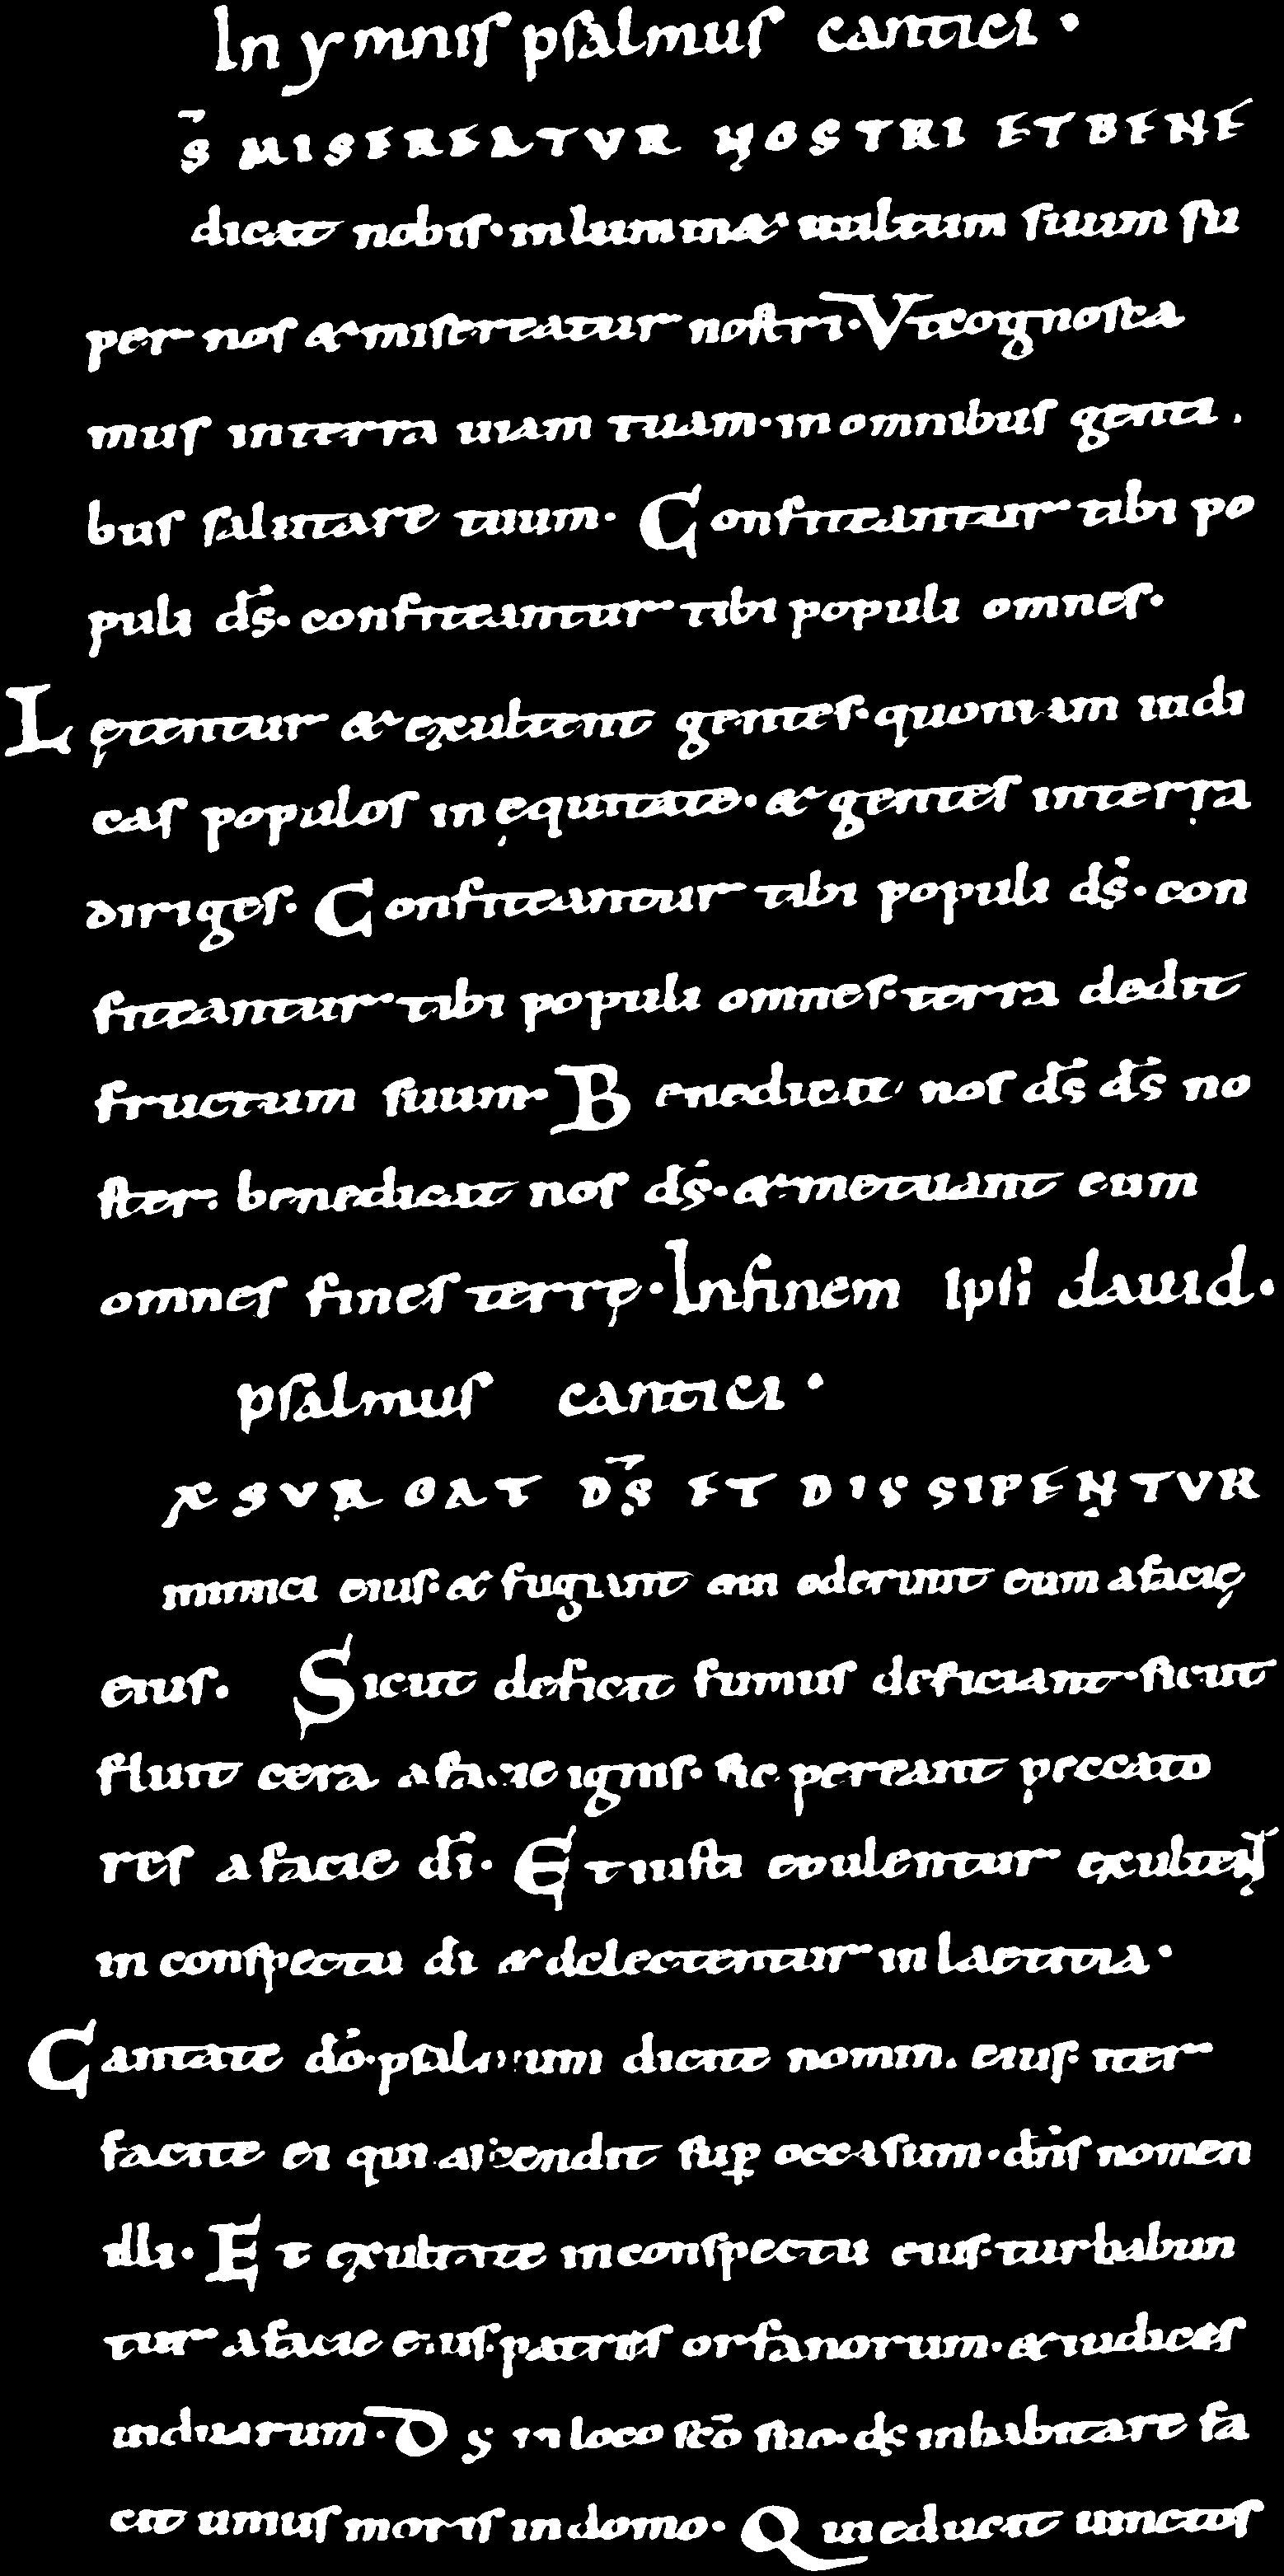 In ymnis psalmus cantici ·
s̄ MISEREATUR NOSTRI ET BENE
dicat nobis · inluminet uultum suum su
per nos & misereatur nostri · Vt cognosca
mus in terra uiam tuam · in omnibus genti .
bus salutare tuum · Confiteantur tibi po
puli ds̄ · confiteantur tibi populi omnes ·
Lętentur & exultent gentes · quoniam iudi
cas populos in ęquitate · & gentes in terra
diriges · Confiteantur tibi populi ds̄ · con
fiteantur tibi populi omnes · terra dedit
fructum suum · Benedicat nos ds̄ ds̄ no
ster · benedicat nos ds̄ · & metuant eum
omnes fines terrę · In finem ipsi dauid ·
psalmus cantici ·
EXSURGAT DS̄ ET DISSIPENTUR
inimici eius · & fugiant qui oderunt eum a facię
eius · Sicut deficit fumus deficiant · sicut
fluit cera a facie ignis · sic pereant peccato
res a facie dī · Et iusti epulentur exultent
in conspectu dī & delectentur in laetitia ·
Cantate dō · psalmum dicite nomini eius · iter
facite ei qui ascendit sup̱ occasum · dn̄s nomen
illi · Et exultate in conspectu eius · turbabun
tur a facie eius · patris orfanorum · & iudices
uiduarum · Ds in loco sc̄o suo · ds inhabitare fa
cit unius moris in domo · Qui educit uinctos